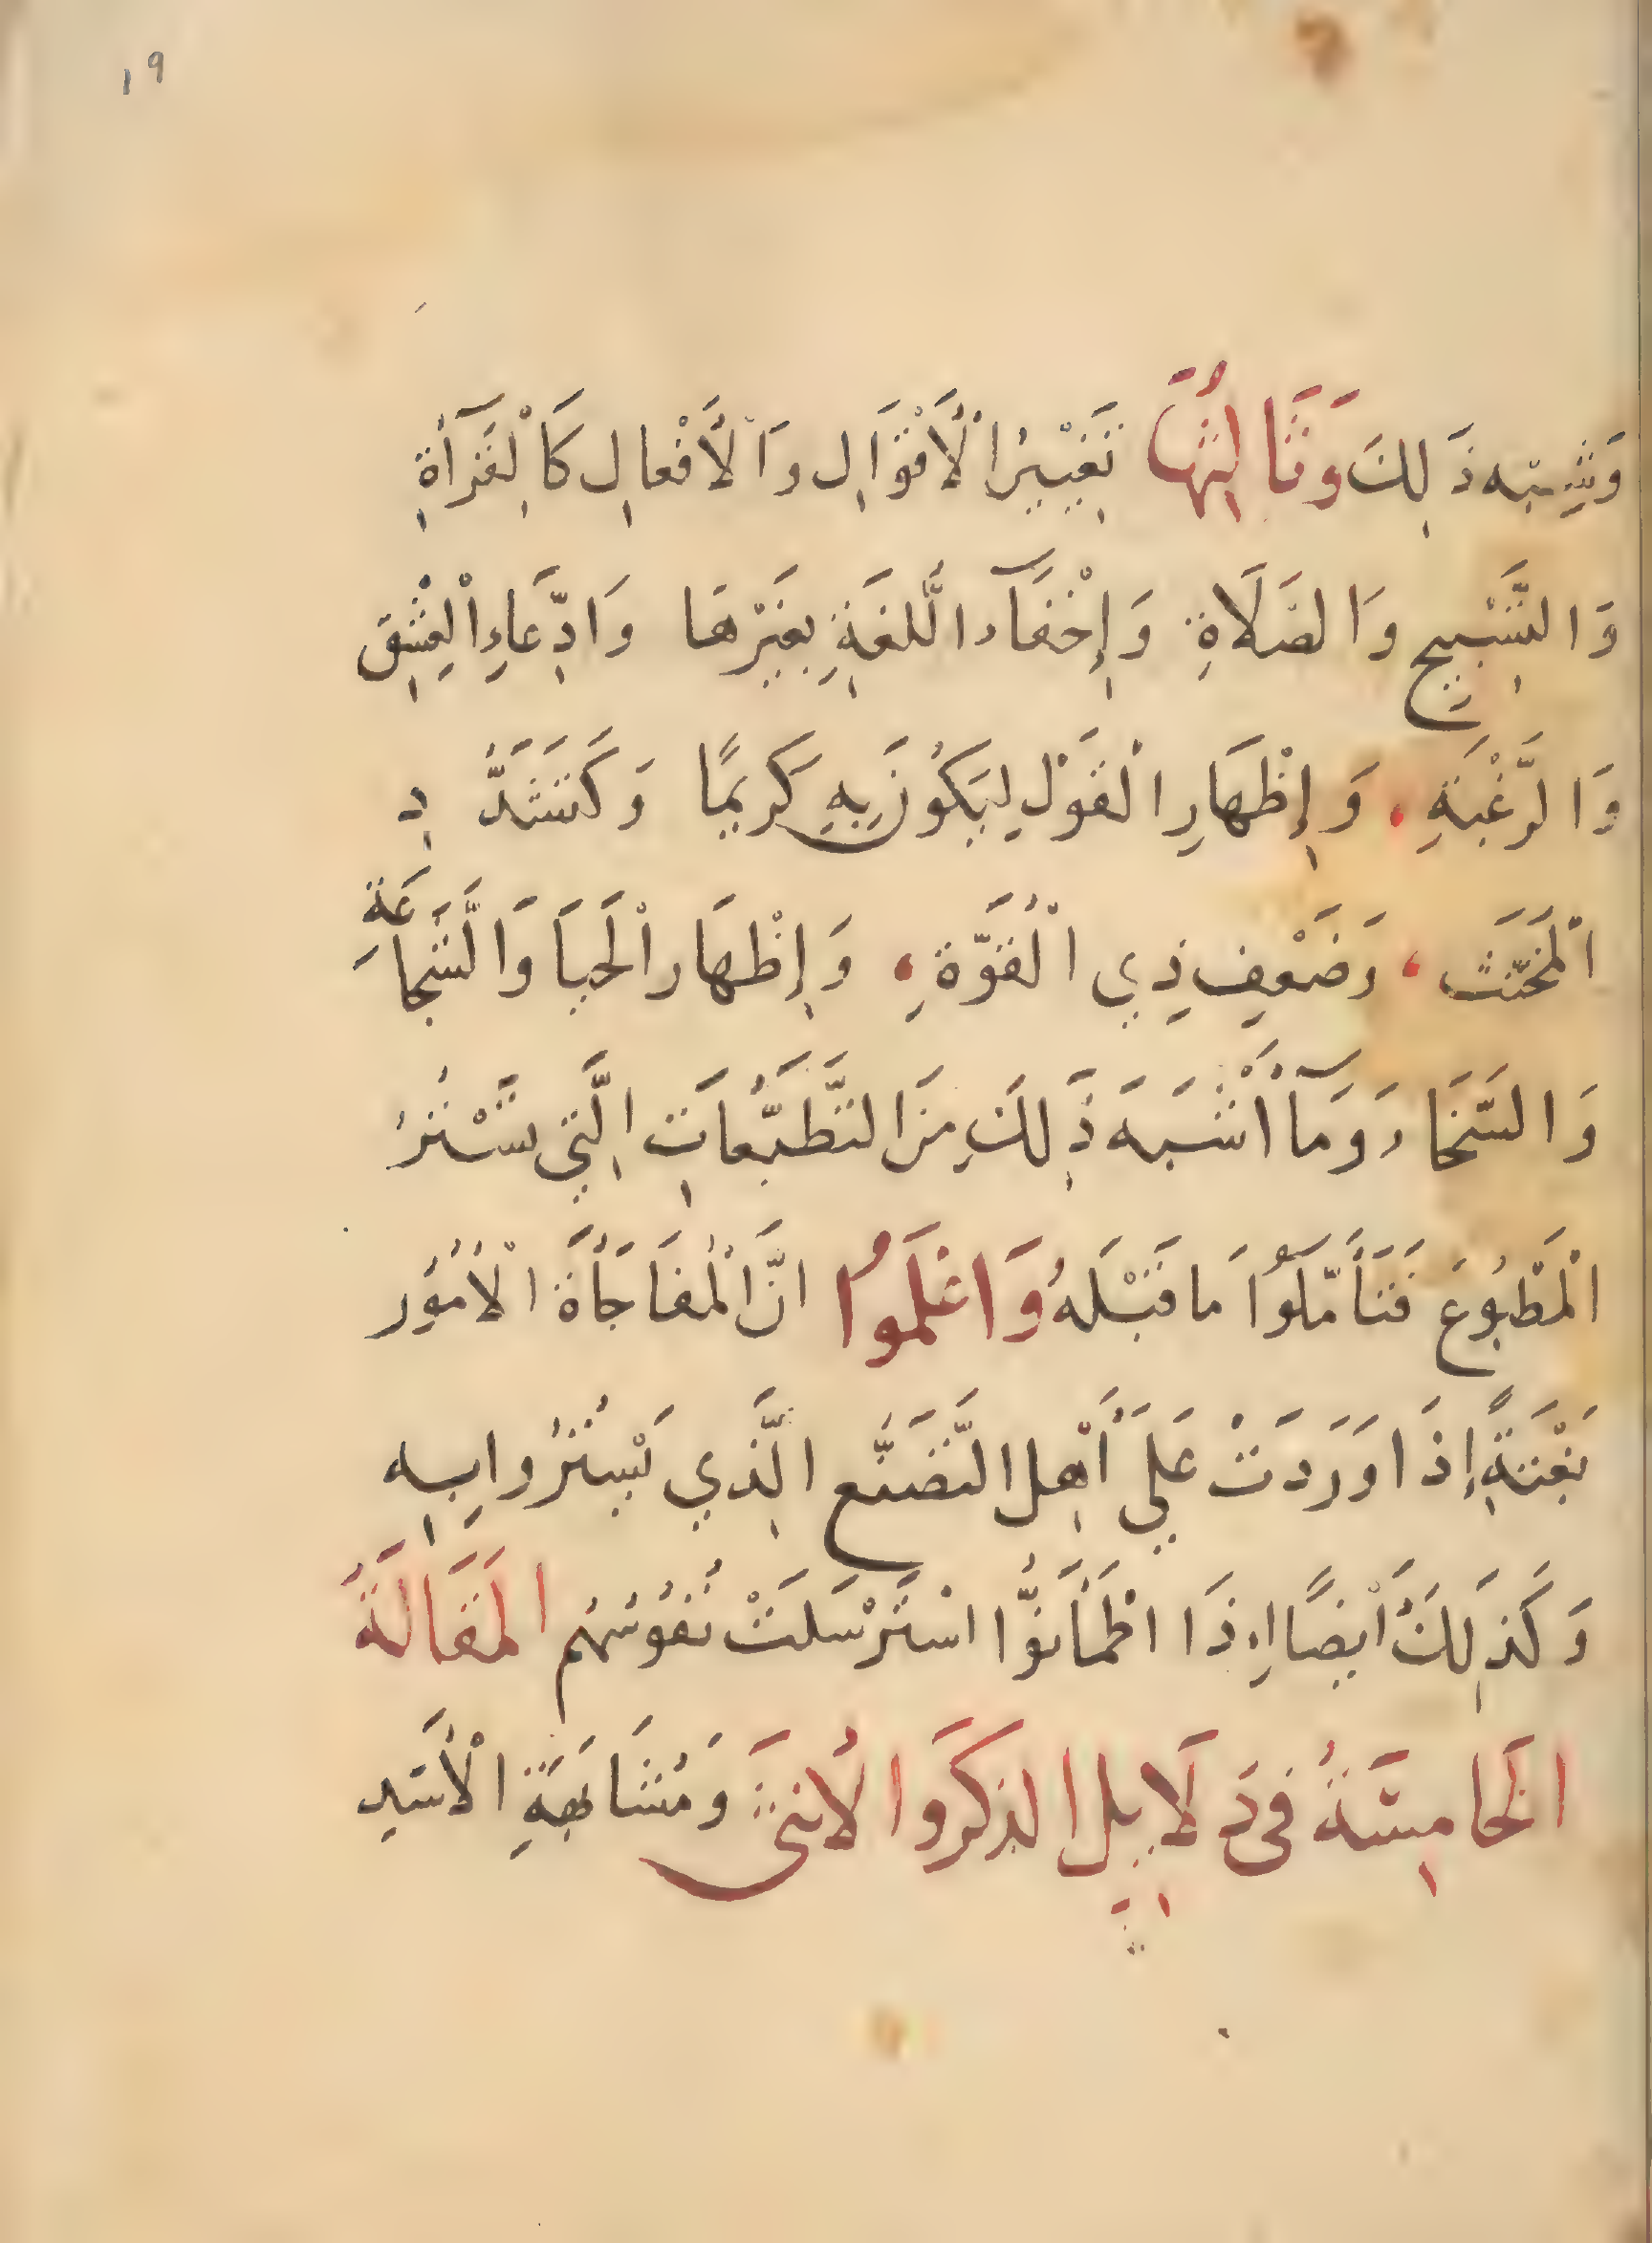 ١٩
وَشِبْه ذَلِكَ وَثَالِثُهَا تَغْيِيْرُ الْأَقْوَالِ وَالْأَفْعالِ كَالْقَرَآةِ
وَالتَّسْبِيحِ وَالصَلَاةِ وَإِخْفَآء اللَّلغَةِ بِغَيْرْهَا وَادِّعَاءِ الْعِشْقِ
وَالرَّغْبَةِ وَإِظْهَارِ الْقَوْل لِيَكُونَ بِهِ كَرِيمًا وَكَتَشَدُّدِ
الْمَخَنَّثِ وَضَعْفِ ذِي الْقُوَّةِ وَإِظْهَار الْحَيَا وَالشَّجَاعَة
وَالسَّخَاء وَمَآ أَشْبَهَ ذَلِكَ مِنَ التَّطَبُّعَاتِ الَّتِي سَتْتُرُ
الْمَطْبُوعَ فَتَأَمَّلُوا مَا قَبْلَهُ وَاعْلَمُوا انَّ الْمُفَاجَأَة الْأُمُوُر
بَغْتَةً إِذَا وَرَدَتْ عَلَي أَهْلِ التَّصَنُّع الَّذِي يَسْتُرُوا بِه
وَكَذَلِكَ أَيْضًا إِذَا اطْمَأَنُّوا اسْتَرْسَلَتْ نُفُوُسُهُم الْمَقَالَةُ
الخَامِسَةُ فِي دَلَايِلِ الذكَر وَالْأُنثَى وَمُشَابَهَةِ الْأَسَدِ